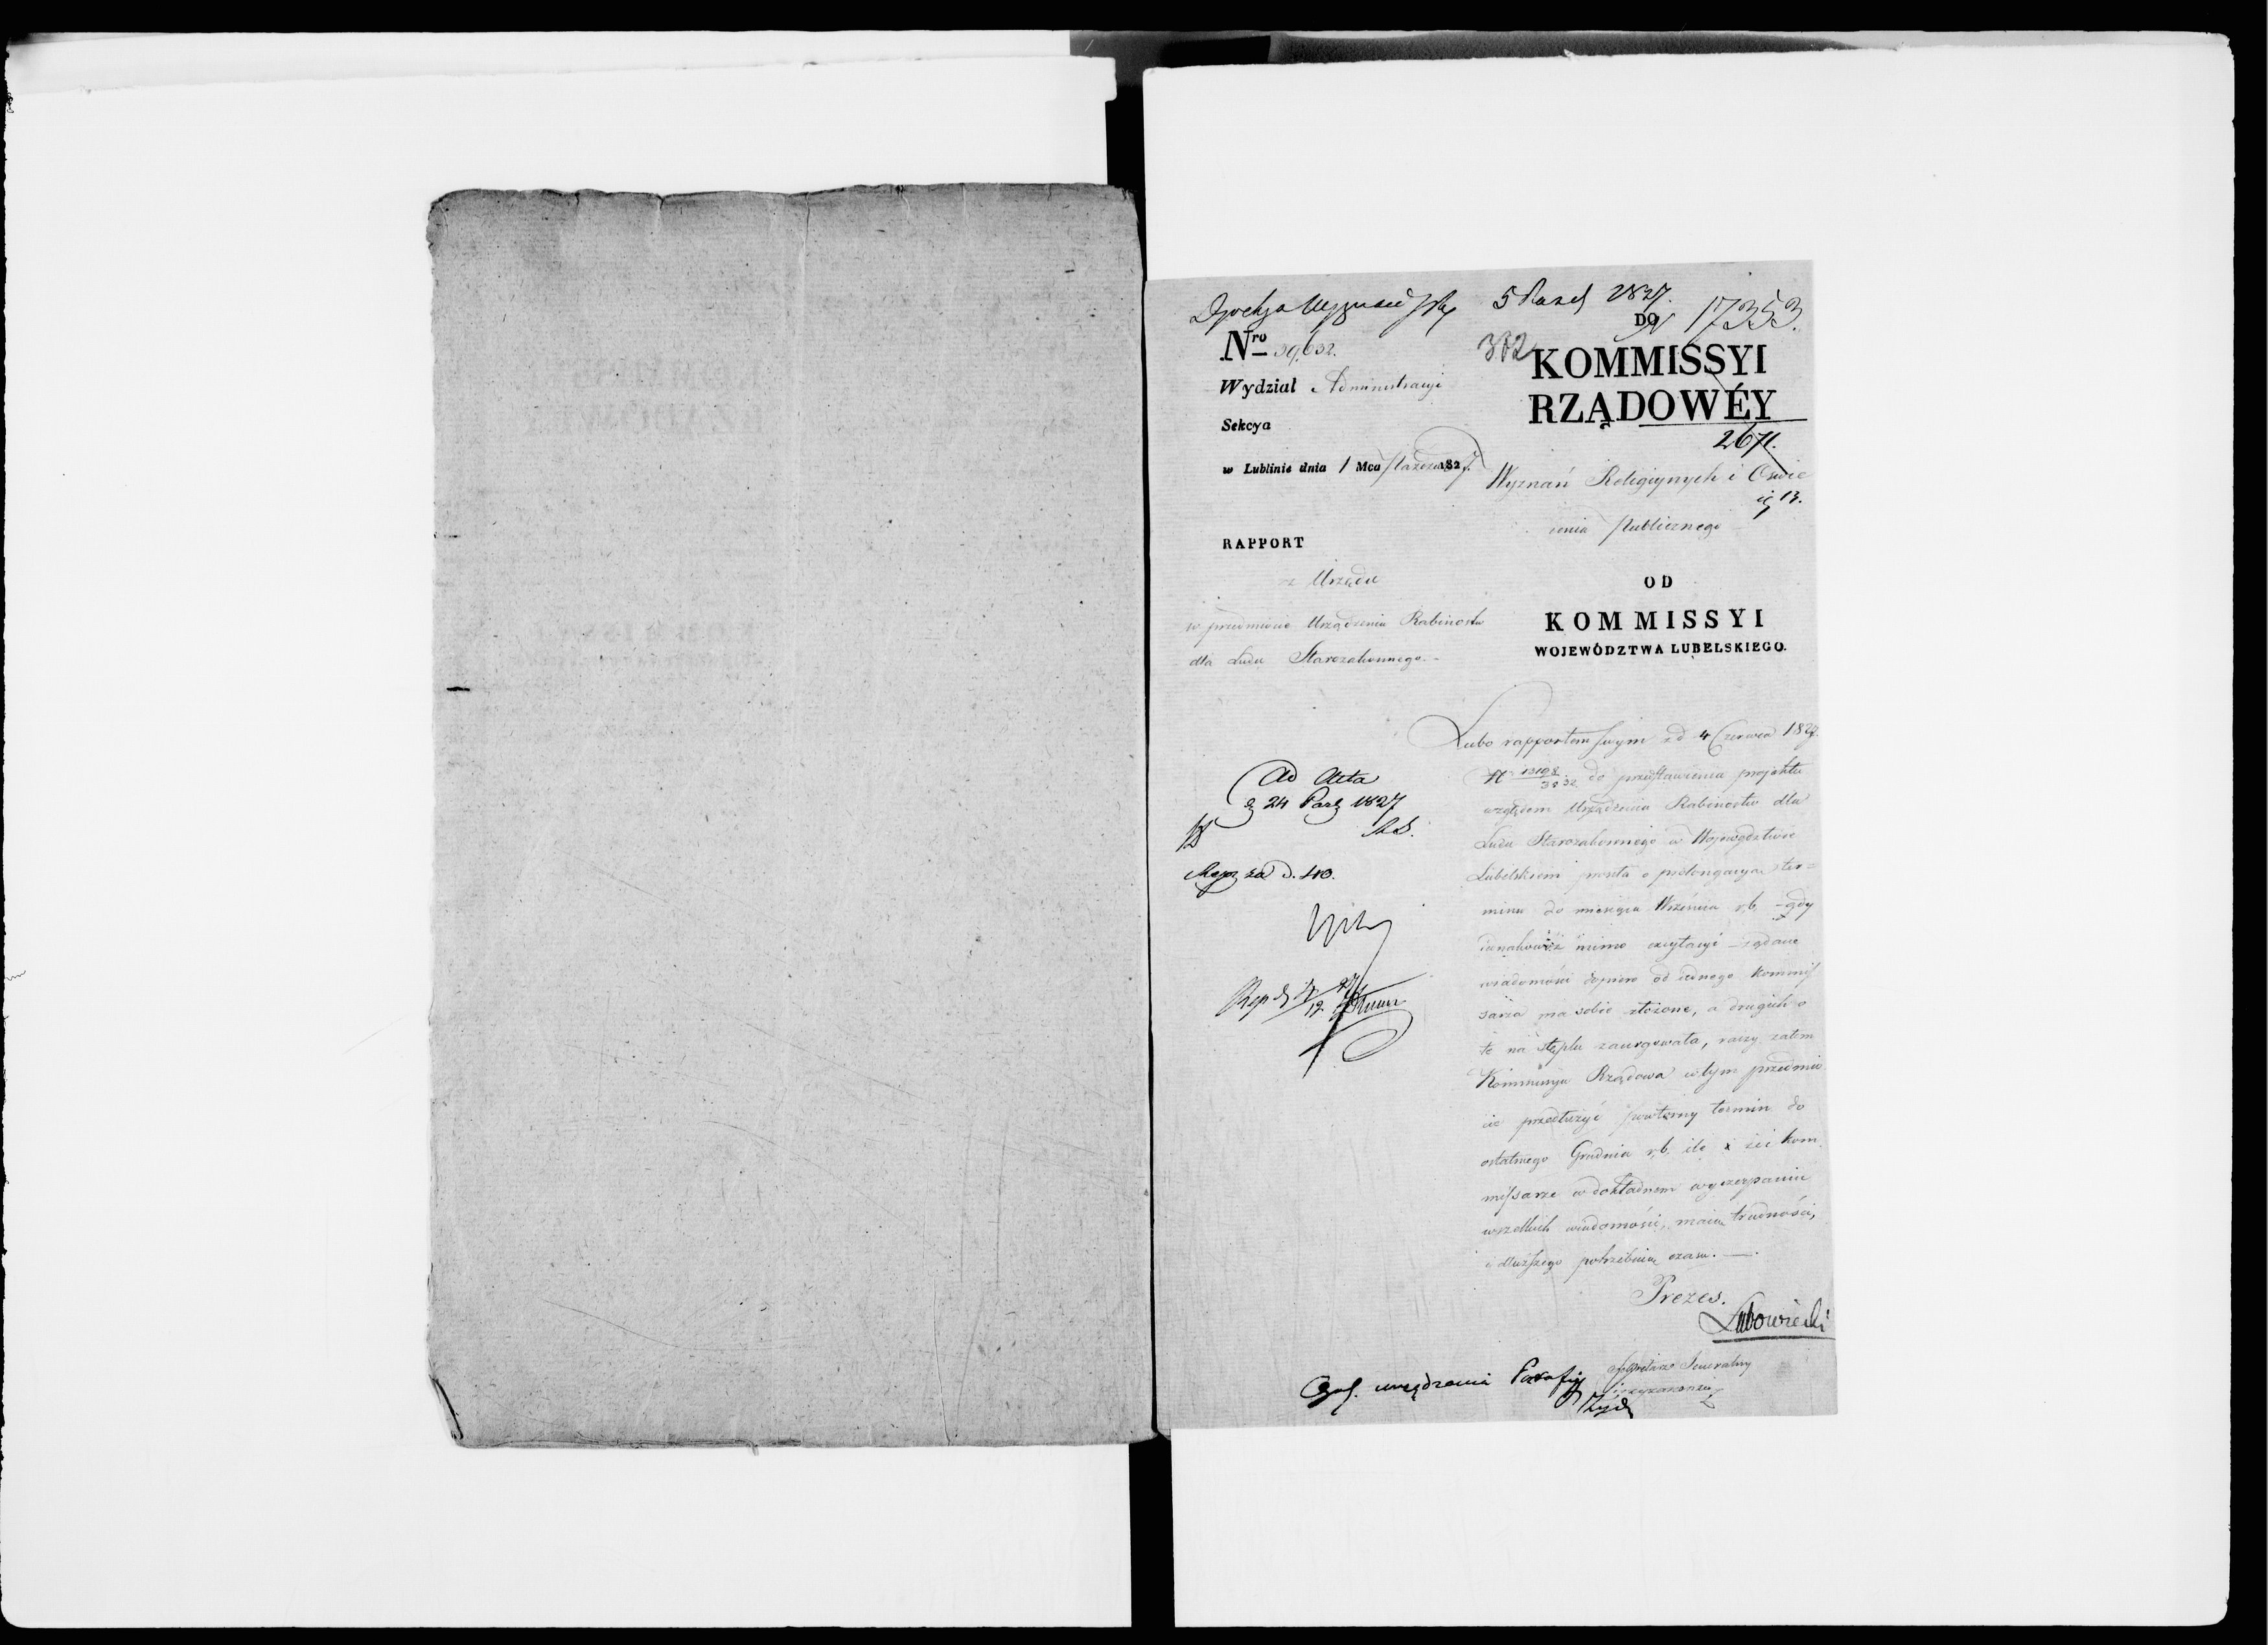 5 Pazd 1827.
DO
N 17353.
Nro 39,632.
382
KOMMISSYI
RZĄDOWÉY
Wydział Administracyi
Sekcya
2671.
w Lublinie dnia 1 Mca Paźdźier 1827.
Wyznań Religiynych i Oświe
cenia Publicznego
RAPPORT
z Urzędu
w przedmiocie Urządzenia Rabinostw
dla Ludu Starozakonnego.-
OD
KOMMISSYI
WOJEWÓDZTWA LUBELSKIEGO.
Lubo rapportem swym z d 4 Czerwca 1827.
N do przedstawienia projektu
względem Urządzenia Rabinostw dla
Ludu Starozakonnego w Województwie
Lubelskiem prosiła o prolongacyą ter=
minu do miesiąca Września r,b, - gdy
iednakowoż mimo excytacyi żądane
wiadomości dopiero od iednego Kommis
sarza ma sobie złożone, a drugich o
te na stęplu zaurgowała, raczy zatem
Kommissya Rządowa w tym przedmio
cie przedłużyć powtórny termin do
ostatniego Grudnia r,b, ile że ci kom
missarze w dokładnem wyczerpaniu
wszelkich wiadomości, maią trudności,
i dłuższego potrzebuią czasu. —.
Prezes.
Lubowiecki
Sekretarz Jeneralny
Ad Acta
d 24 Paźd 1827
urządzenia Parafiy
Żyd